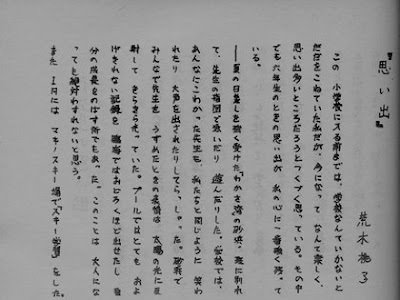 『思い出』
荒木
この小学校に入る前までは、学校なんていかないと
だだをこねていた私だが、今になって なんて楽しく、
思い出多いところだろうとつくづく思っている。その中
でも六年生のときの思い出が 私の心に一番強く残って
いる。
――夏の日差しを強く受けた「かさ湾」の砂浜。海に
て、先生の指図で泳いだり 遊んだりした。学校では、
あんなにこわかった先生も、私たちと同じように 笑わ
れたり 大声を出されたりしてらっしゃった。砂浜で
みんなで先生を うずめたときの表情は 太陽の光に反
射して きらきら光っていた。プールではとても およ
げきれない記録を 臨海ではおどろくほど出せたし 自
分の成長をのばす所でもあった。このことは 大人にな
っても 忘れないと思う。
また 1月には マキノスキー場で「スキー学習」をした。